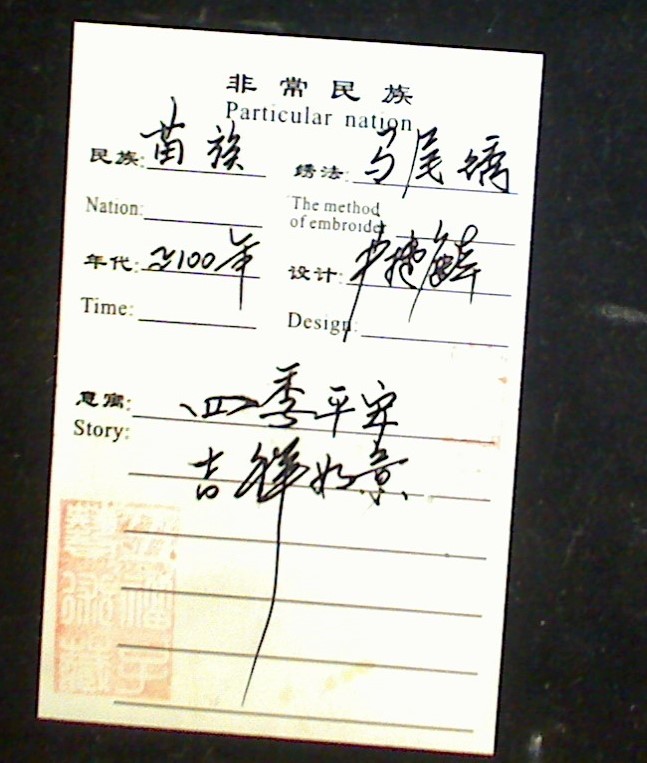 非常民族
Particular nation
民族: 苗族 绣法: 马尾绣
Nation: The method
of embroider
年代: ≈100年 设计:
Time: Design:
意寓: 四季平安
Story: 吉祥如意